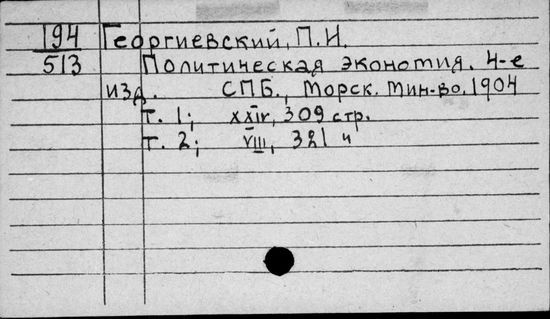 194 Георгиевский, П.И.
513 Политическая экономия. 4-е
изд. СПБ., Морск. мин-во, 1904
т. 1; xxiv, 309 стр.
т. 2; viii, 321 "